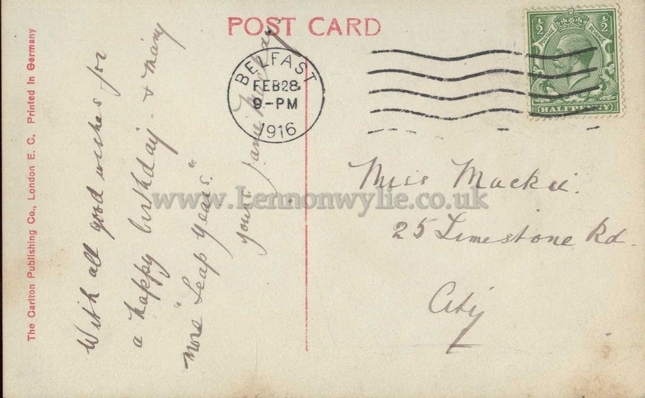 POST CARD
The Carlton Publishing Co., London E. C. Printed in Germany
With all good wishes for
a happy birthday - & many
more "Leap Years."
yours
BELFAST
FEB 28
9-PM
1916
½ ½
HALFPENNY
Miss Mackie.
25 Limestone Rd.
City
www.Lennonwylie.co.uk